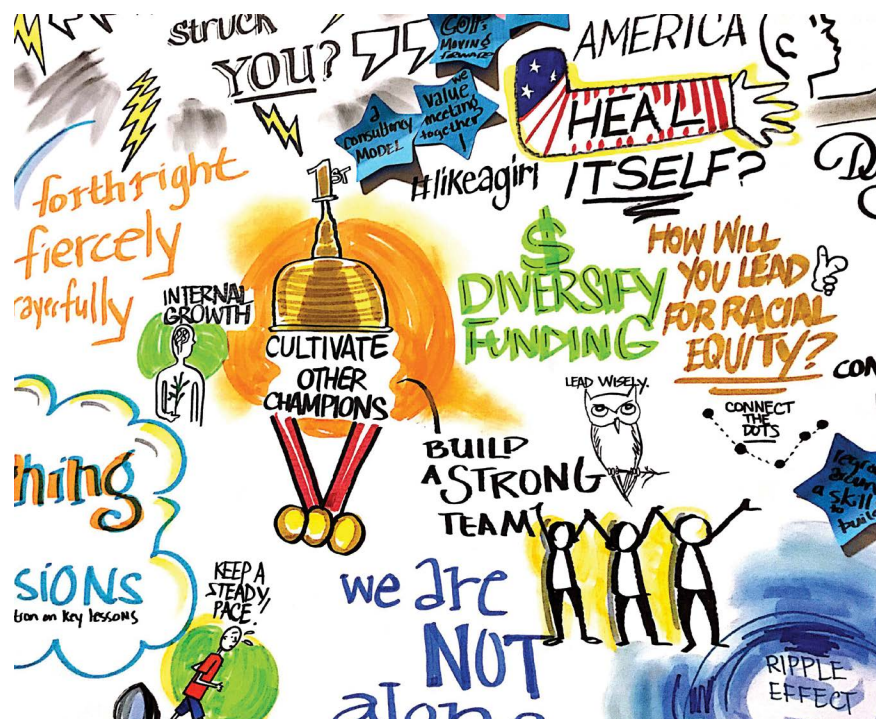 struck
YOU?
GOPs
MOVING
forward
AMERICA
HEAL
ITSELF?
we
value
meeting
together
!
a
consultancy
MODEL
#likeagirl
forthright
fiercely
rayerfully
1ST
INTERNAL
GROWTH
CULTIVATE
OTHER
CHAMPIONS
$
DIVERSIFY
FUNDING
HOW WILL
YOU LEAD
FOR RACIAL
EQUITY?
CON
LEAD WISELY.
CONNECT
THE
DOTS
BUILD
A STRONG
TEAM
a skill
to
build
hing
SIONS
tion on key lessons
KEEP A
STEADY
PACE!!
we are
NOT
alone
RIPPLE
EFFECT